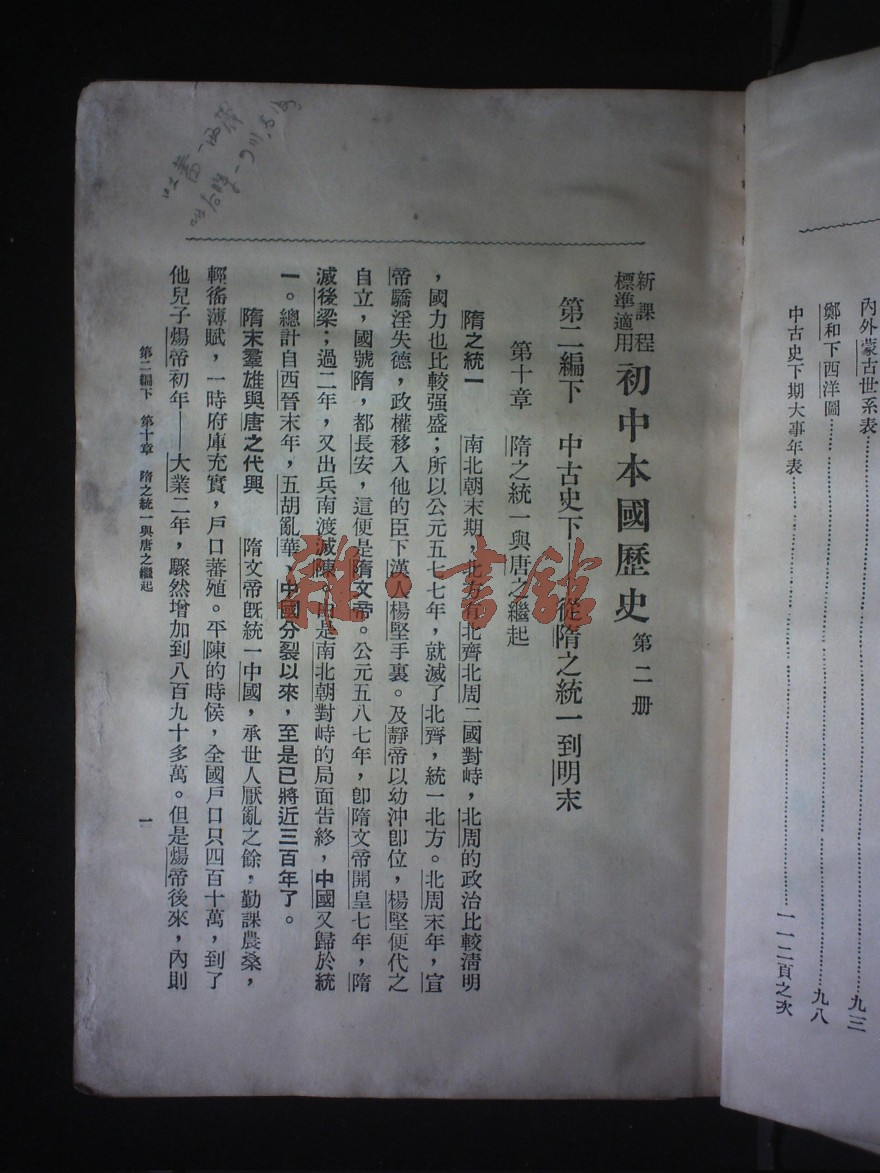 內外蒙古世系表……九三
鄭和下西洋圖……九八
中古史下期大事年表……一一二頁之次
新課程
標準適用
初中本國歷史 第二册
第二編下 中古史下——從隋之統一到明末
第十章 隋之統一與唐之繼起
隋之統一 南北朝末期，北方有北齊北周二國對峙，北周的政治比較淸明
，國力也比較强盛；所以公元五七七年，就滅了北齊，統一北方。北周末年，宣
帝驕淫失德，政權移入他的臣下漢人楊堅手裏。及靜帝以幼沖卽位，楊堅便代之
自立，國號隋，都長安，這便是隋文帝。公元五八七年，卽隋文帝開皇七年，隋
滅後梁；過二年，又出兵南渡滅陳。由是南北朝對峙的局面告終，中國又歸於統
一。總計自西晉末年，五胡亂華、中國分裂以來，至是已將近三百年了。
隋末羣雄與唐之代興 隋文帝旣統一中國，承世人厭亂之餘，勤課農桑，
輕徭薄賦，一時府庫充實，戶口蕃殖。平陳的時候，全國戶口只四百十萬，到了
他兒子煬帝初年——大業二年，驟然增加到八百九十多萬。但是煬帝後來，內則
第二編下 第十章 隋之統一與唐之繼起
一
雜·書館